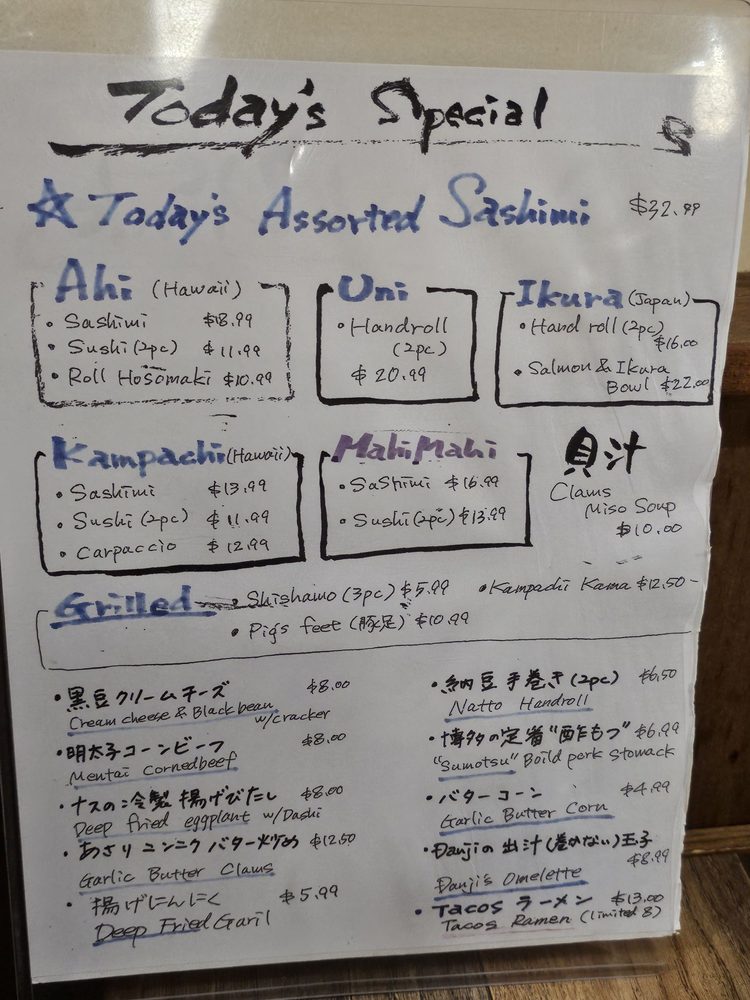 Today's Special
☆ Today's Assorted Sashimi $32.99
Ahi (Hawaii)
• Sashimi $18.99
• Sushi (2pc) $11.99
• Roll Hosomaki $10.99
Uni
• Handroll
(2pc)
$20.99
Ikura (Japan)
• Hand roll (2pc)
$16.00
• Salmon & Ikura
Bowl $22.00
Kampachi (Hawaii)
• Sashimi $13.99
• Sushi (2pc) $11.99
• Carpaccio $12.99
MahiMahi
• Sashimi $16.99
• Sushi (2pc) $13.99
貝汁
Clams
Miso Soup
$10.00
Grilled
• Shishamo (3pc) $5.99
• Kampachi Kama $12.50-
• Pig's feet (豚足) $10.99
• 黒豆クリームチーズ $8.00
Cream cheese & Black bean
w/cracker
• 明太子コーンビーフ $8.00
Mentai Cornedbeef
• ナスの冷製 揚げびたし $8.00
Deep fried eggplant w/Dashi
• あさり ニンニク バター炒め $12.50
Garlic Butter Clams
• 揚げにんにく $5.99
Deep Fried Garil
• 納豆手巻き (2pc) $6.50
Natto Handroll
• 博多の定番"酢もつ" $6.99
"Sumotsu" Boild pork Stomack
• バターコーン $4.99
Garlic Butter Corn
• Danjiの出汁(巻かない)玉子
$8.99
Danji's Omelette
• Tacos ラーメン $13.00
Tacos Ramen (limited 8)